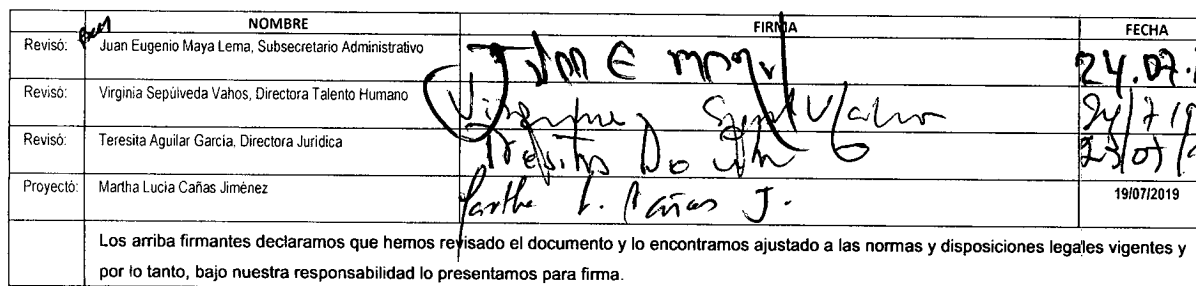 NOMBRE FIRMA FECHA
Revisó: Juan Eugenio Maya Lema, Subsecretario Administrativo 24.07.
Revisó: Virginia Sepúlveda Vahos, Directora Talento Humano 24/7/19
Revisó: Teresita Aguilar García, Directora Jurídica 23/07/
Proyectó: Martha Lucia Cañas Jiménez Martha L. Cañas J. 19/07/2019
Los arriba firmantes declaramos que hemos revisado el documento y lo encontramos ajustado a las normas y disposiciones legales vigentes y
por lo tanto, bajo nuestra responsabilidad lo presentamos para firma.